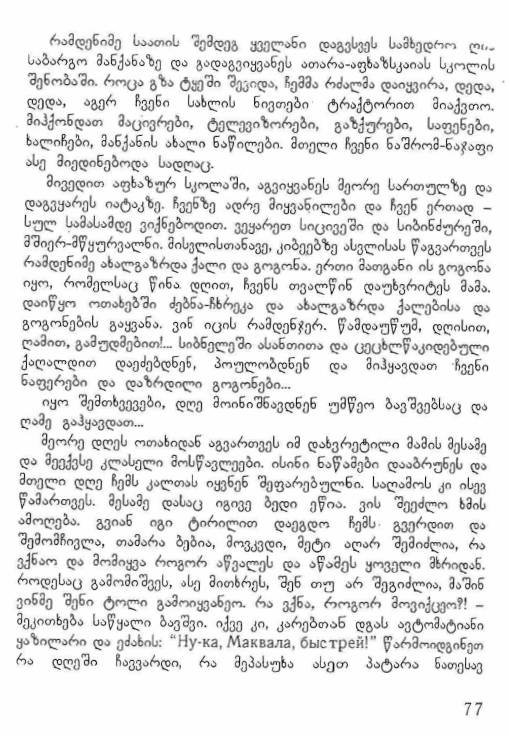 რამდენიმე საათის შემდეგ ყველანი დაგვსვეს სამხედრო
საბარგო მანქანაზე და გადაგვიყვანეს ათარა-აფხაზსკაიას სკოლის
შენობაში. როცა გზა ტყეში შევიდა, ჩემმა რძალმა დაიყვირა, დედა,
დედა, აგერ ჩვენი სახლის ნივთები ტრაქტორით მიაქვთო.
მიჰქონდათ მაცივრები, ტელევიზორები, გაზქურები, საფენები,
ხალიჩები, მანქანის ახალი ნაწილები. მთელი ჩვენი ნაშრომ-ნაჯაფი
ასე მიედინებოდა სადღაც.
მივედით აფხაზურ სკოლაში, აგვიყვანეს მეორე სართულზე და
დაგვყარეს იატაკზე. ჩვენზე ადრე მიყვანილები და ჩვენ ერთად –
სულ სამასამდე ვიქნებოდით. ვეყარეთ სიცივეში და სიბინძურეში,
მშიერ-მწყურვალნი. მისვლისთანავე, კიბეებზე ასვლისას წაგვართვეს
რამდენიმე ახალგაზრდა ქალი და გოგონა. ერთი მათგანი ის გოგონა
იყო, რომელსაც წინა დღით, ჩვენს თვალწინ დაუხვრიტეს მამა.
დაიწყო ოთახებში ძებნა-ჩხრეკა და ახალგაზრდა ქალებისა და
გოგონების გაყვანა. ვინ იცის რამდენჯერ. წამდაუწუმ, დღისით,
ღამით, გამუდმებით!... სიბნელეში ასანთითა და ცეცხლწაკიდებული
ქაღალდით დაეძებდნენ, პოულობდნენ და მიჰყავდათ ჩვენი
ნაფერები და დაზრდილი გოგონები...
იყო შემთხვევები, დღე მოინიშნავდნენ უმწეო ბავშვებსაც და
ღამე გაჰყავდათ...
მეორე დღეს ოთახიდან აგვართვეს იმ დახვრეტილი მამის მესამე
და მეექვსე კლასელი მოსწავლეები. ისინი ნაწამები დააბრუნეს და
მთელი დღე ჩემს კალთას იყვნენ შეფარებულნი. საღამოს კი ისევ
წამართვეს. მესამე დასაც იგივე ბედი ეწია. ვის შეეძლო ხმის
ამოღება. გვიან იგი ტირილით დაეგდო ჩემს გვერდით და
შემომჩივლა, თამარა ბებია, მოვკვდი, მეტი აღარ შემიძლია, რა
ვქნაო და მომიყვა როგორ აწვალეს და აწამეს ყოველი მხრიდან.
როდესაც გამომიშვეს, ასე მითხრეს, შენ თუ არ შეგიძლია, მაშინ
ვინმე შენი ტოლი გამოიყვანეო. რა ვქნა, როგორ მოვიქცეო?! –
მეკითხება საწყალი ბავშვი. იქვე კი, კარებთან დგას ავტომატიანი
ყაზილარი და ეძახის: “Ну-ка, Маквала, быстрей!” წარმოიდგინეთ
რა დღეში ჩავვარდი, რა მეპასუხა ასეთ პატარა ნათესავ
77